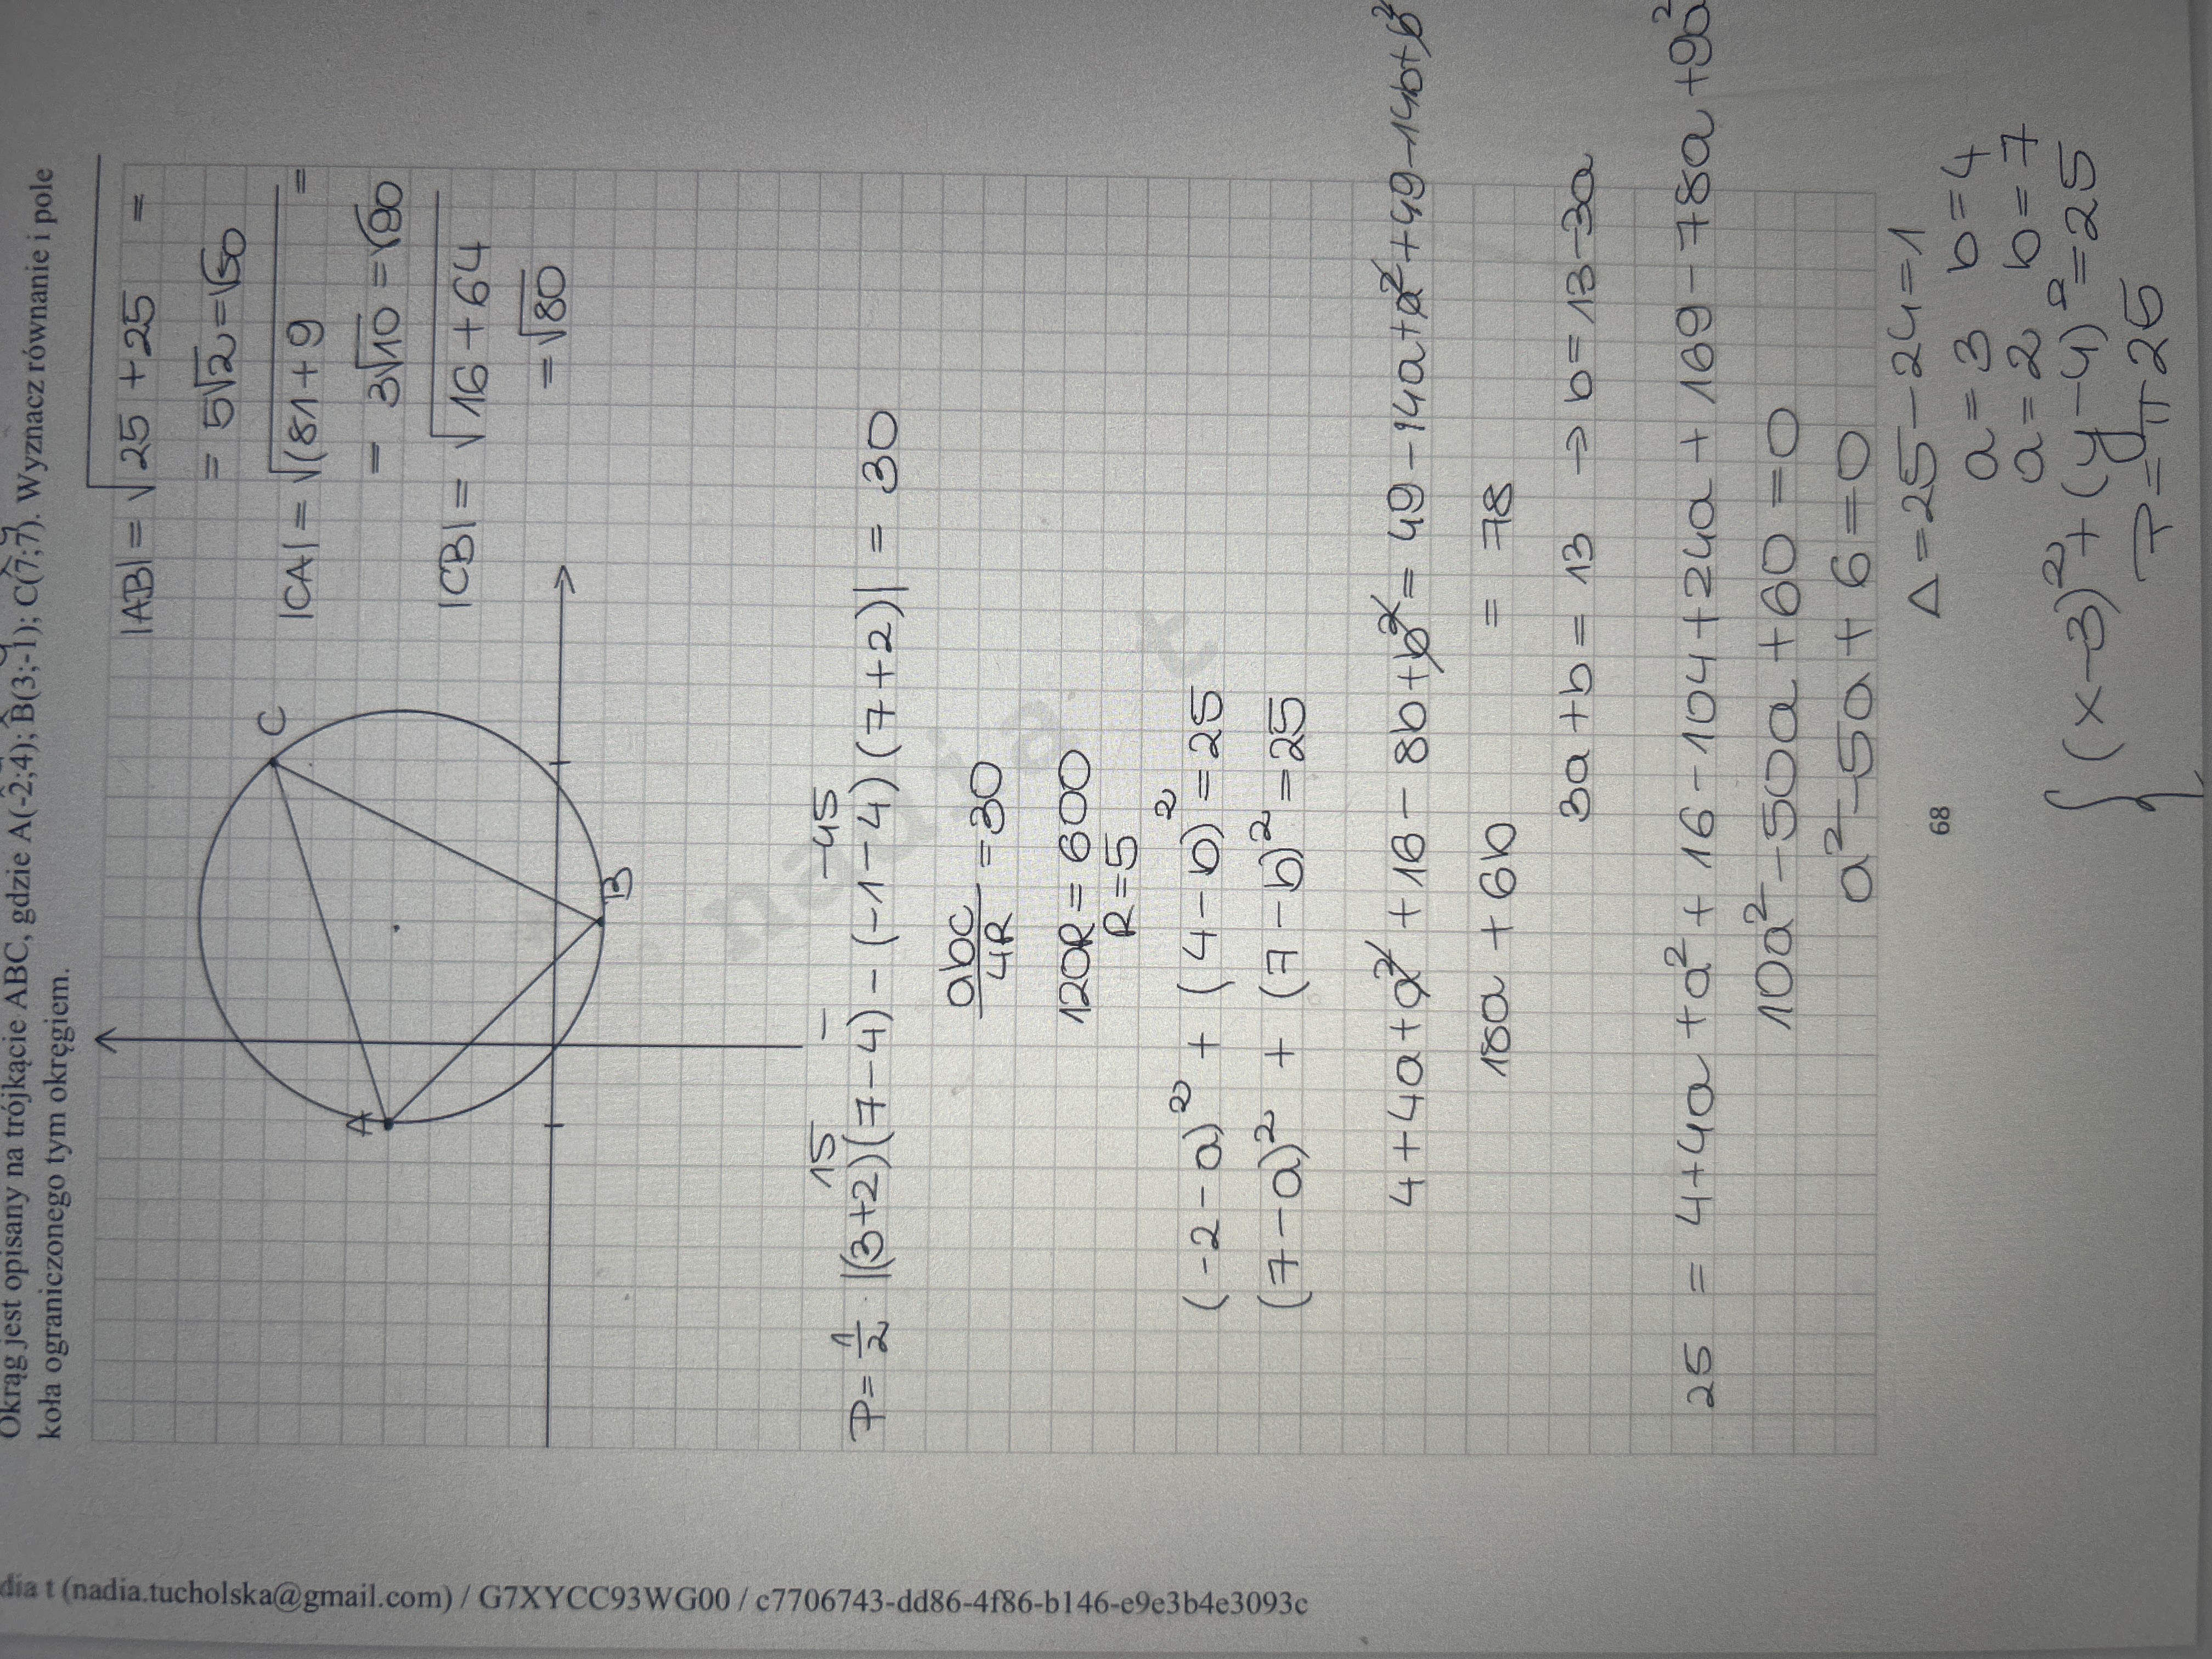 Okrąg jest opisany na trójkącie ABC, gdzie A(-2;4); B(3;-1); C(7;7). Wyznacz równanie i pole
koła ograniczonego tym okręgiem.
|AB| = √25 + 25 =
= 5√2 = √50
|CA| = √(81 + 9 =
= 3√10 = √90
|CB| = √16 + 64
= √80
A
B
C
15 - -45
P = 1/2 |(3+2)(7-4) - (-1-4)(7+2)| = 30
abc/4R = 30
120R = 600
R = 5
(-2-a)² + (4-b)² = 25
(7-a)² + (7-b)² = 25
4+4a+a² + 16 - 8b + b² = 49 - 14a + a² + 49 - 14b + b²
18a + 6b = 78
3a + b = 13 → b = 13 - 3a
25 = 4 + 4a + a² + 16 - 104 + 24a + 169 - 78a + 9a²
10a² - 50a + 60 = 0
a² - 5a + 6 = 0
Δ = 25 - 24 = 1
a = 3 b = 4
a = 2 b = 7
(x-3)² + (y-4)² = 25
P = π 25
68
nadia t
dia t (nadia.tucholska@gmail.com) / G7XYCC93WG00 / c7706743-dd86-4f86-b146-e9e3b4e3093c